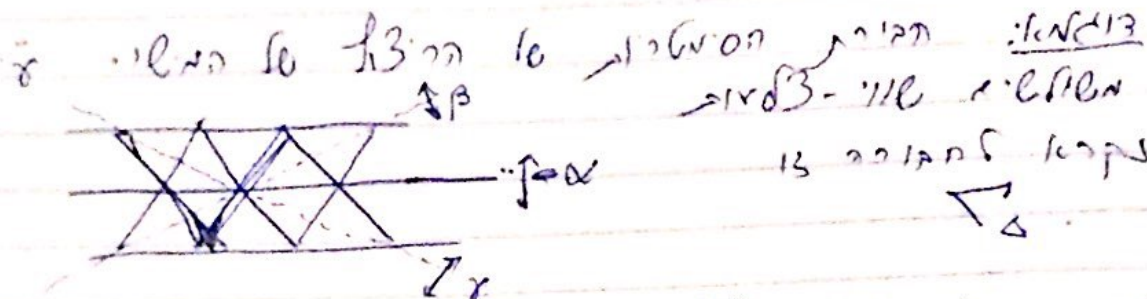 דוגמא: חבורת הסימטריות של הריצוף של המישור γ
β
משולשים שווי-צלעות
נקרא לחבורה זו α
Γ△.
γ